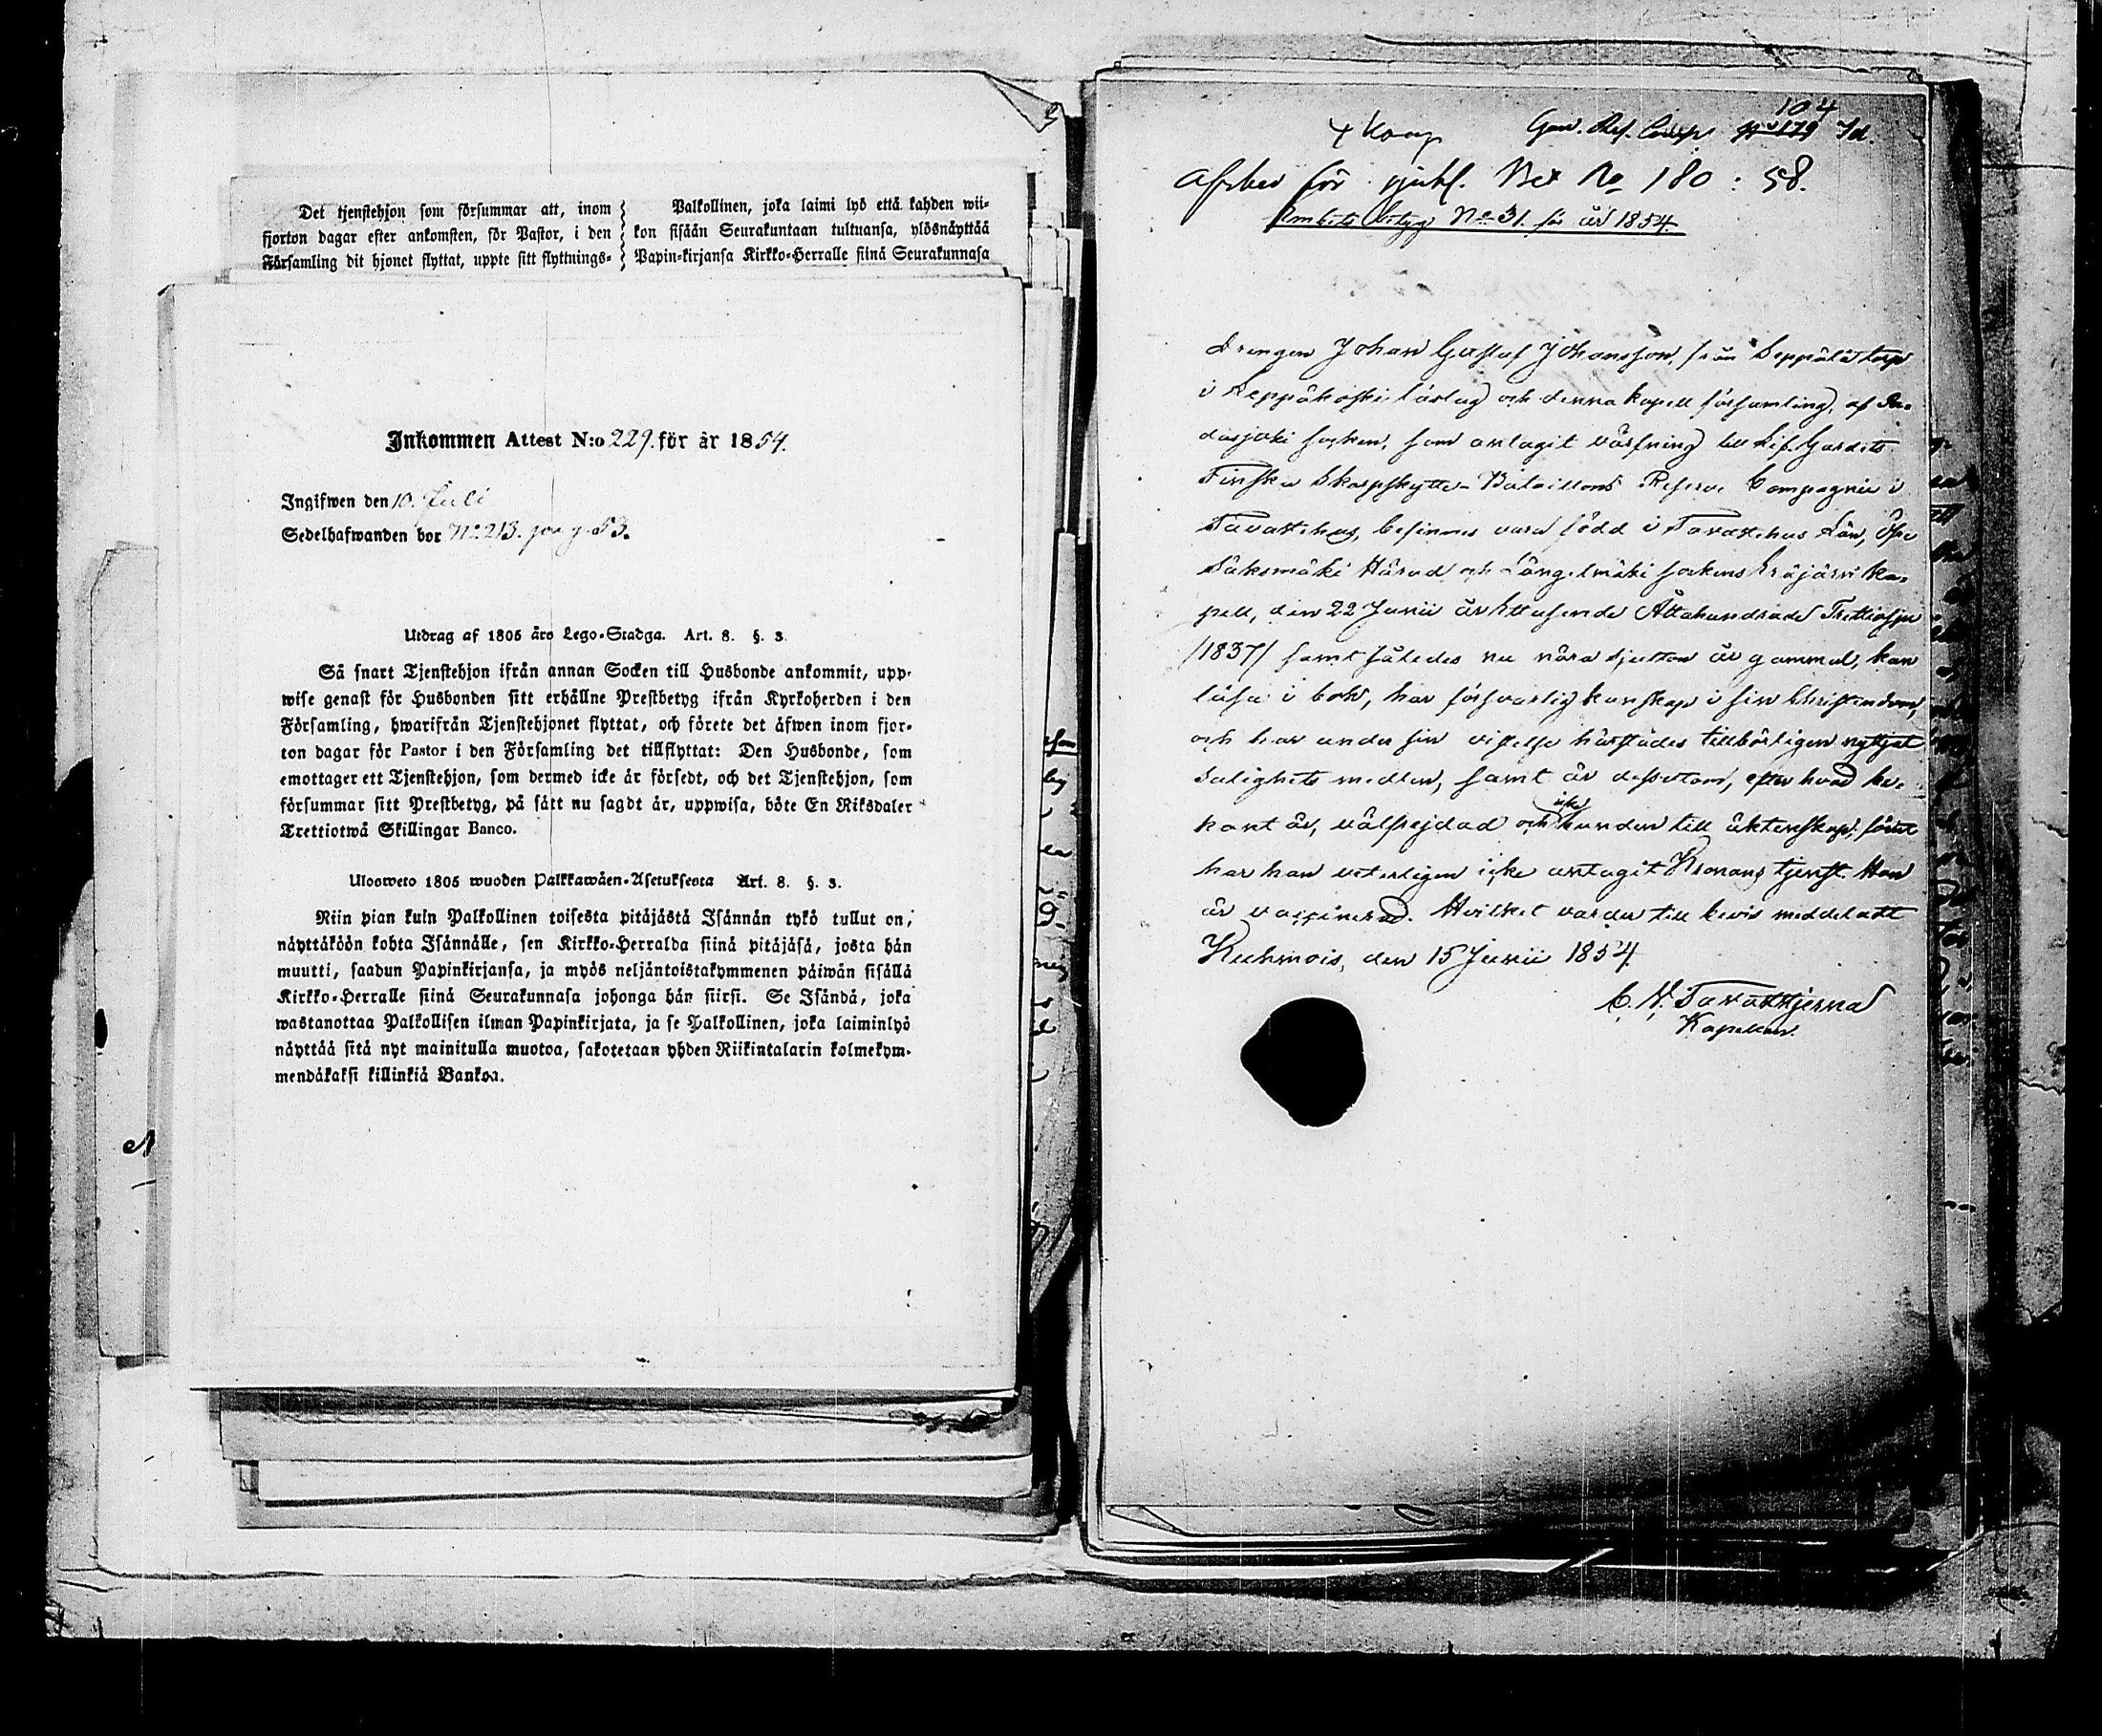 Det tjenstehjon som försummar att, inom
fjorton dagar efter ankomsten, för Pastor, i den
Församling dit hjonet flyttat, uppte sitt flyttnings-
Palkollinen, joka laimi lyö että kahden wii-
kon sisään Seurakuntaan tultuansa, ylösnäyttää
Papin-kirjansa Kirkko-Herralle siinä Seurakunnasa
Inkommen Attest N:o 229. för år 1854.
Ingifwen den 10. Juli
Sedelhafwanden bor No 213. g. 53.
Utdrag af 1805 års Lego-Stadga. Art. 8. §. 3.
Så snart Tjenstehjon ifrån annan Socken till Husbonde ankommit, upp-
wise genast för Husbonden sitt erhållne Prestbetyg ifrån Kyrkoherden i den
Församling, hwarifrån Tjenstehjonet flyttat, och förete det äfwen inom fjor-
ton dagar för Pastor i den Församling det tillflyttat: Den Husbonde, som
emottager ett Tjenstehjon, som dermed icke är försedt, och det Tjenstehjon, som
försummar sitt Prestbetyg, på sätt nu sagdt är, uppwisa, böte En Riksdaler
Trettiotwå Skillingar Banco.
Ulosweto 1805 wuoden Palkkawäen-Asetuksesta Art. 8. §. 3.
Niin pian kuin Palkollinen toisesta pitäjästä Isännän tykö tullut on,
näyttäköön kohta Isännälle, sen Kirkko-Herralda siinä pitäjäsä, josta hän
muutti, saadun Papinkirjansa, ja myös neljäntoistakymmenen päiwän sisällä
Kirkko-Herralle siinä Seurakunnasa johonga hän siirsi. Se Isändä, joka
wastanottaa Palkollisen ilman Papinkirjata, ja se Palkollinen, joka laiminlyö
näyttää sitä nyt mainitulla muotoa, sakotetaan yhden Riikintalarin kolmekym-
mendäkaksi killinkiä Bankoa.
104
4 Komp Res. Comp. No 179
för sjukl. Bet No 180 : 58.
Embets betyg No 31. för år 1854.
Drengen Johan Gustaf Johansson, från Seppälä torp
i Leppäkoski löslag och denna kapell församling, af Pa-
dasjoki socken, som antagit värfning till Lif-Gardets
Finska Skarpskytte-Bataillons Reserv Compagnie i
Tavastehus, befinnes vara född i Tavastehus Län, Öfre
Sääksmäki Härad och Längelmäki sockens Eräjärvi ka-
pell, den 22 Junii år Ettusende Åttahundrade Trettiosju
/1837/ samt således nu nära sjutton år gammal, kan
läsa i bok, har försvarlig kunskap i sin Christendom,
och har under sin vistelse härstädes tillbörligen nyttjat
Salighets medlen, samt är dessutom, efter hvad be-
kant är, välfrejdad och icke bunden till äktenskap, förut
har han veterligen icke antagit Kronans tjenst. Han
är vaccinerad. Hvilket varder till bevis meddeladt
Kuhmois, den 15 Junii 1854.
C. N. Tavaststjerna
Kapellan.